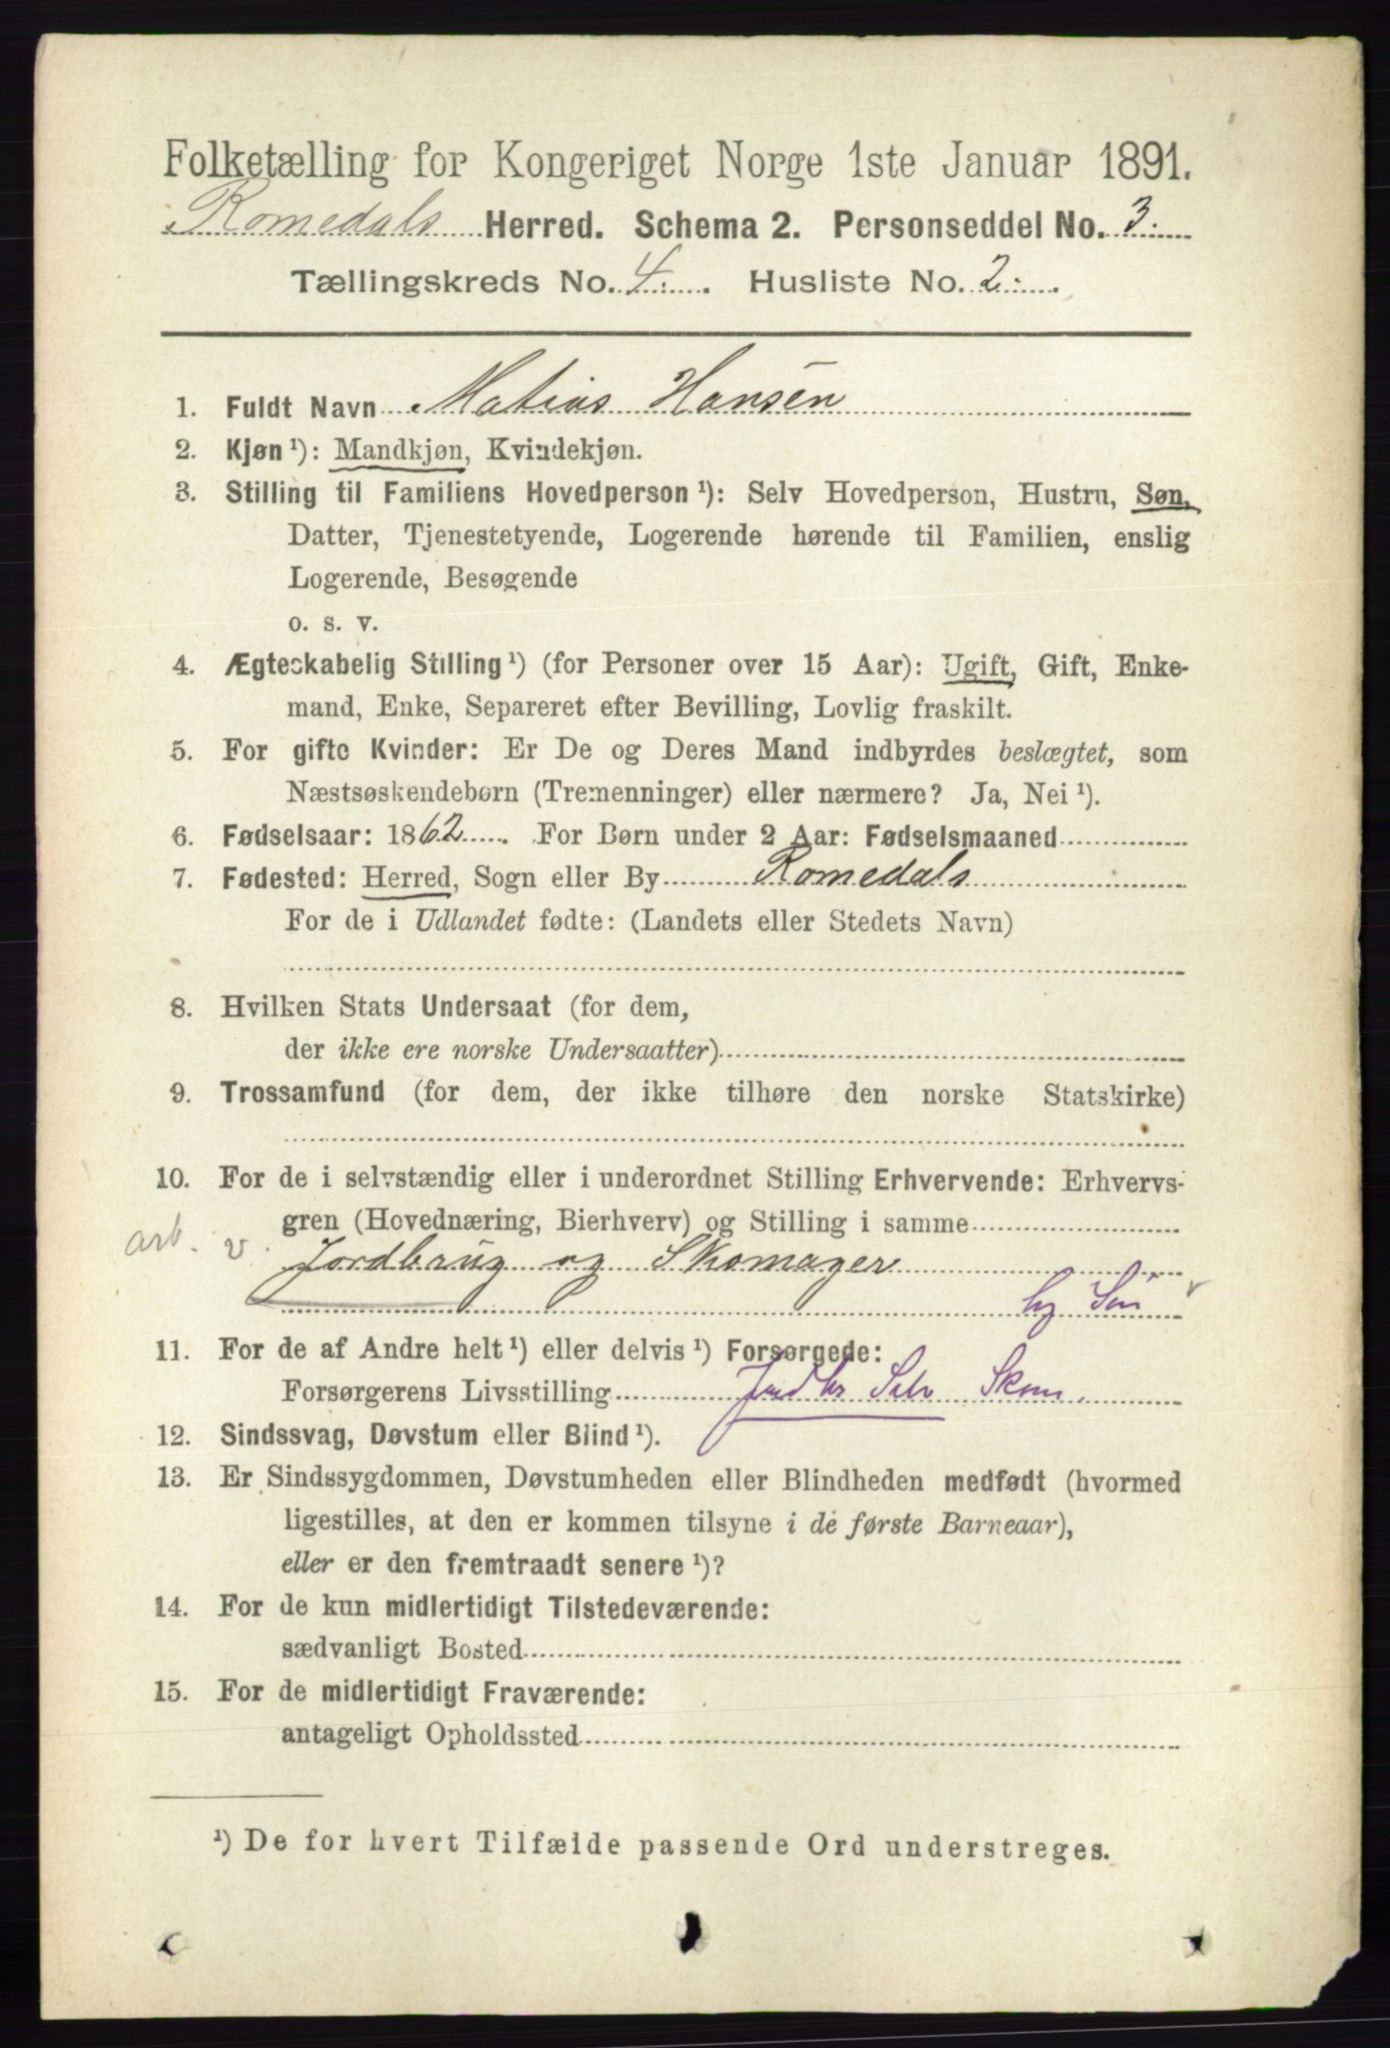 Folketælling for Kongeriget Norge 1ste Januar 1891.
Romedals Herred. Schema 2. Personseddel No. 3.
Tællingskreds No. 4. Husliste No. 2.
1. Fuldt Navn Matias Hansen
2. Kjøn ¹): Mandkjøn, Kvindekjøn.
3. Stilling til Familiens Hovedperson ¹): Selv Hovedperson, Hustru, Søn,
Datter, Tjenestetyende, Logerende hørende til Familien, enslig
Logerende, Besøgende
o. s. v.
4. Ægteskabelig Stilling ¹) (for Personer over 15 Aar): Ugift, Gift, Enke-
mand, Enke, Separeret efter Bevilling, Lovlig fraskilt.
5. For gifte Kvinder: Er De og Deres Mand indbyrdes beslægtet, som
Næstsøskendebørn (Tremenninger) eller nærmere? Ja, Nei ¹).
6. Fødselsaar: 1862. For Børn under 2 Aar: Fødselsmaaned
7. Fødested: Herred, Sogn eller By Romedals
For de i Udlandet fødte: (Landets eller Stedets Navn)
8. Hvilken Stats Undersaat (for dem,
der ikke ere norske Undersaatter)
9. Trossamfund (for dem, der ikke tilhøre den norske Statskirke)
10. For de i selvstændig eller i underordnet Stilling Erhvervende: Erhvervs-
gren (Hovednæring, Bierhverv) og Stilling i samme
arb. v. Jordbrug og Skomager
Søn
11. For de af Andre helt ¹) eller delvis ¹) Forsørgede:
Forsørgerens Livsstilling Jordbr Selv Skom.
12. Sindssvag, Døvstum eller Blind ¹).
13. Er Sindssygdommen, Døvstumheden eller Blindheden medfødt (hvormed
ligestilles, at den er kommen tilsyne i de første Barneaar),
eller er den fremtraadt senere ¹)?
14. For de kun midlertidigt Tilstedeværende:
sædvanligt Bosted
15. For de midlertidigt Fraværende:
antageligt Opholdssted
¹) De for hvert Tilfælde passende Ord understreges.